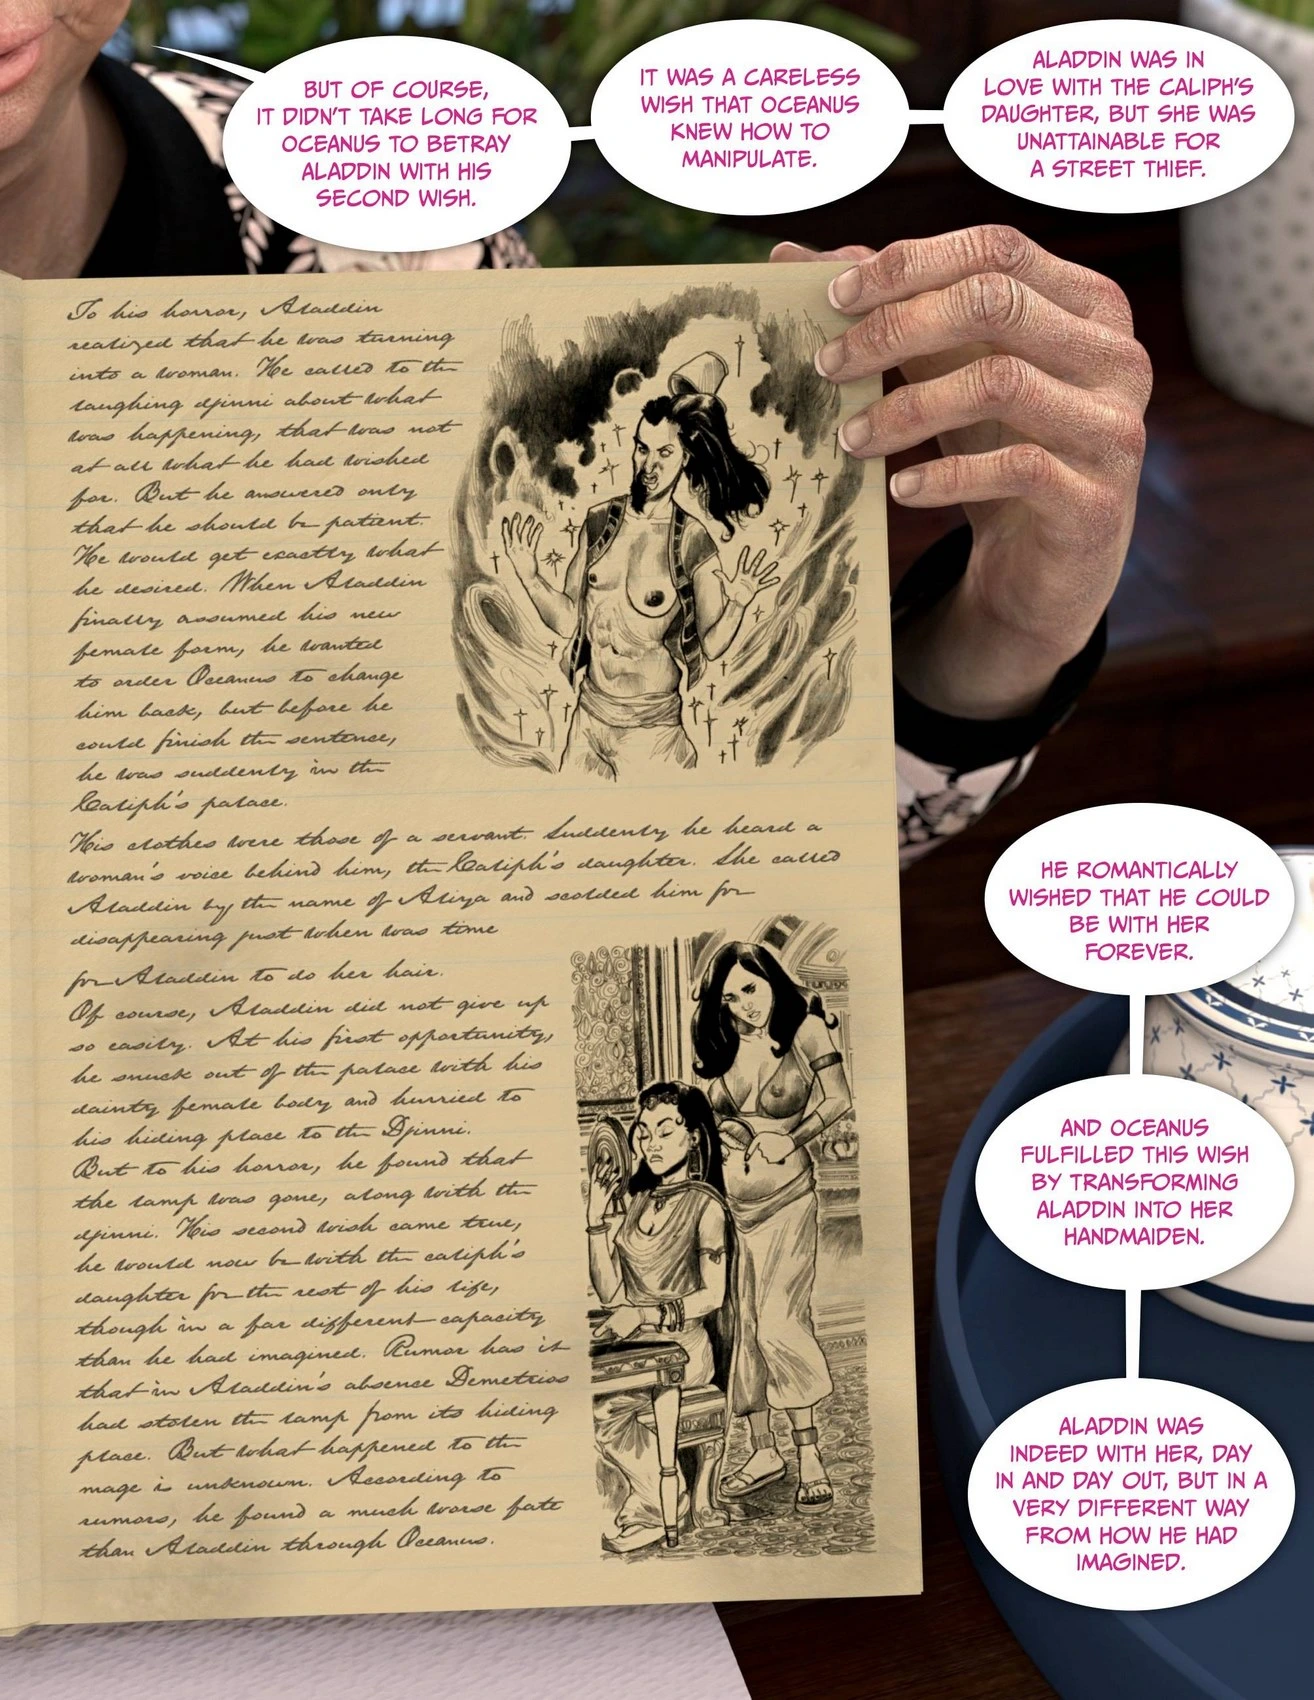 BUT OF COURSE,
IT DIDN'T TAKE LONG FOR
OCEANUS TO BETRAY
ALADDIN WITH HIS
SECOND WISH.
IT WAS A CARELESS
WISH THAT OCEANUS
KNEW HOW TO
MANIPULATE.
ALADDIN WAS IN
LOVE WITH THE CALIPH'S
DAUGHTER, BUT SHE WAS
UNATTAINABLE FOR
A STREET THIEF.
To his horror, Aladdin
realized that he was turning
into a woman. He called to the
laughing djinni about what
was happening, that was not
at all what he had wished
for. But he answered only
that he should be patient.
He would get exactly what
he desired. When Aladdin
finally assumed his new
female form, he wanted
to order Oceanus to change
him back, but before he
could finish the sentence,
he was suddenly in the
Caliph's palace.
His clothes were those of a servant. Suddenly he heard a
woman's voice behind him, the Caliph's daughter. She called
Aladdin by the name of Aliya and scolded him for
disappearing just when was time
for Aladdin to do her hair.
Of course, Aladdin did not give up
so easily. At his first opportunity,
he snuck out of the palace with his
dainty female body and hurried to
his hiding place to the Djinni.
But to his horror, he found that
the lamp was gone, along with the
djinni. His second wish came true,
he would now be with the caliph's
daughter for the rest of his life,
though in a far different capacity
than he had imagined. Rumor has it
that in Aladdin's absence Demetrios
had stolen the lamp from its hiding
place. But what happened to the
mage is unknown. According to
rumors, he found a much worse fate
than Aladdin through Oceanus.
HE ROMANTICALLY
WISHED THAT HE COULD
BE WITH HER
FOREVER.
AND OCEANUS
FULFILLED THIS WISH
BY TRANSFORMING
ALADDIN INTO HER
HANDMAIDEN.
ALADDIN WAS
INDEED WITH HER, DAY
IN AND DAY OUT, BUT IN A
VERY DIFFERENT WAY
FROM HOW HE HAD
IMAGINED.